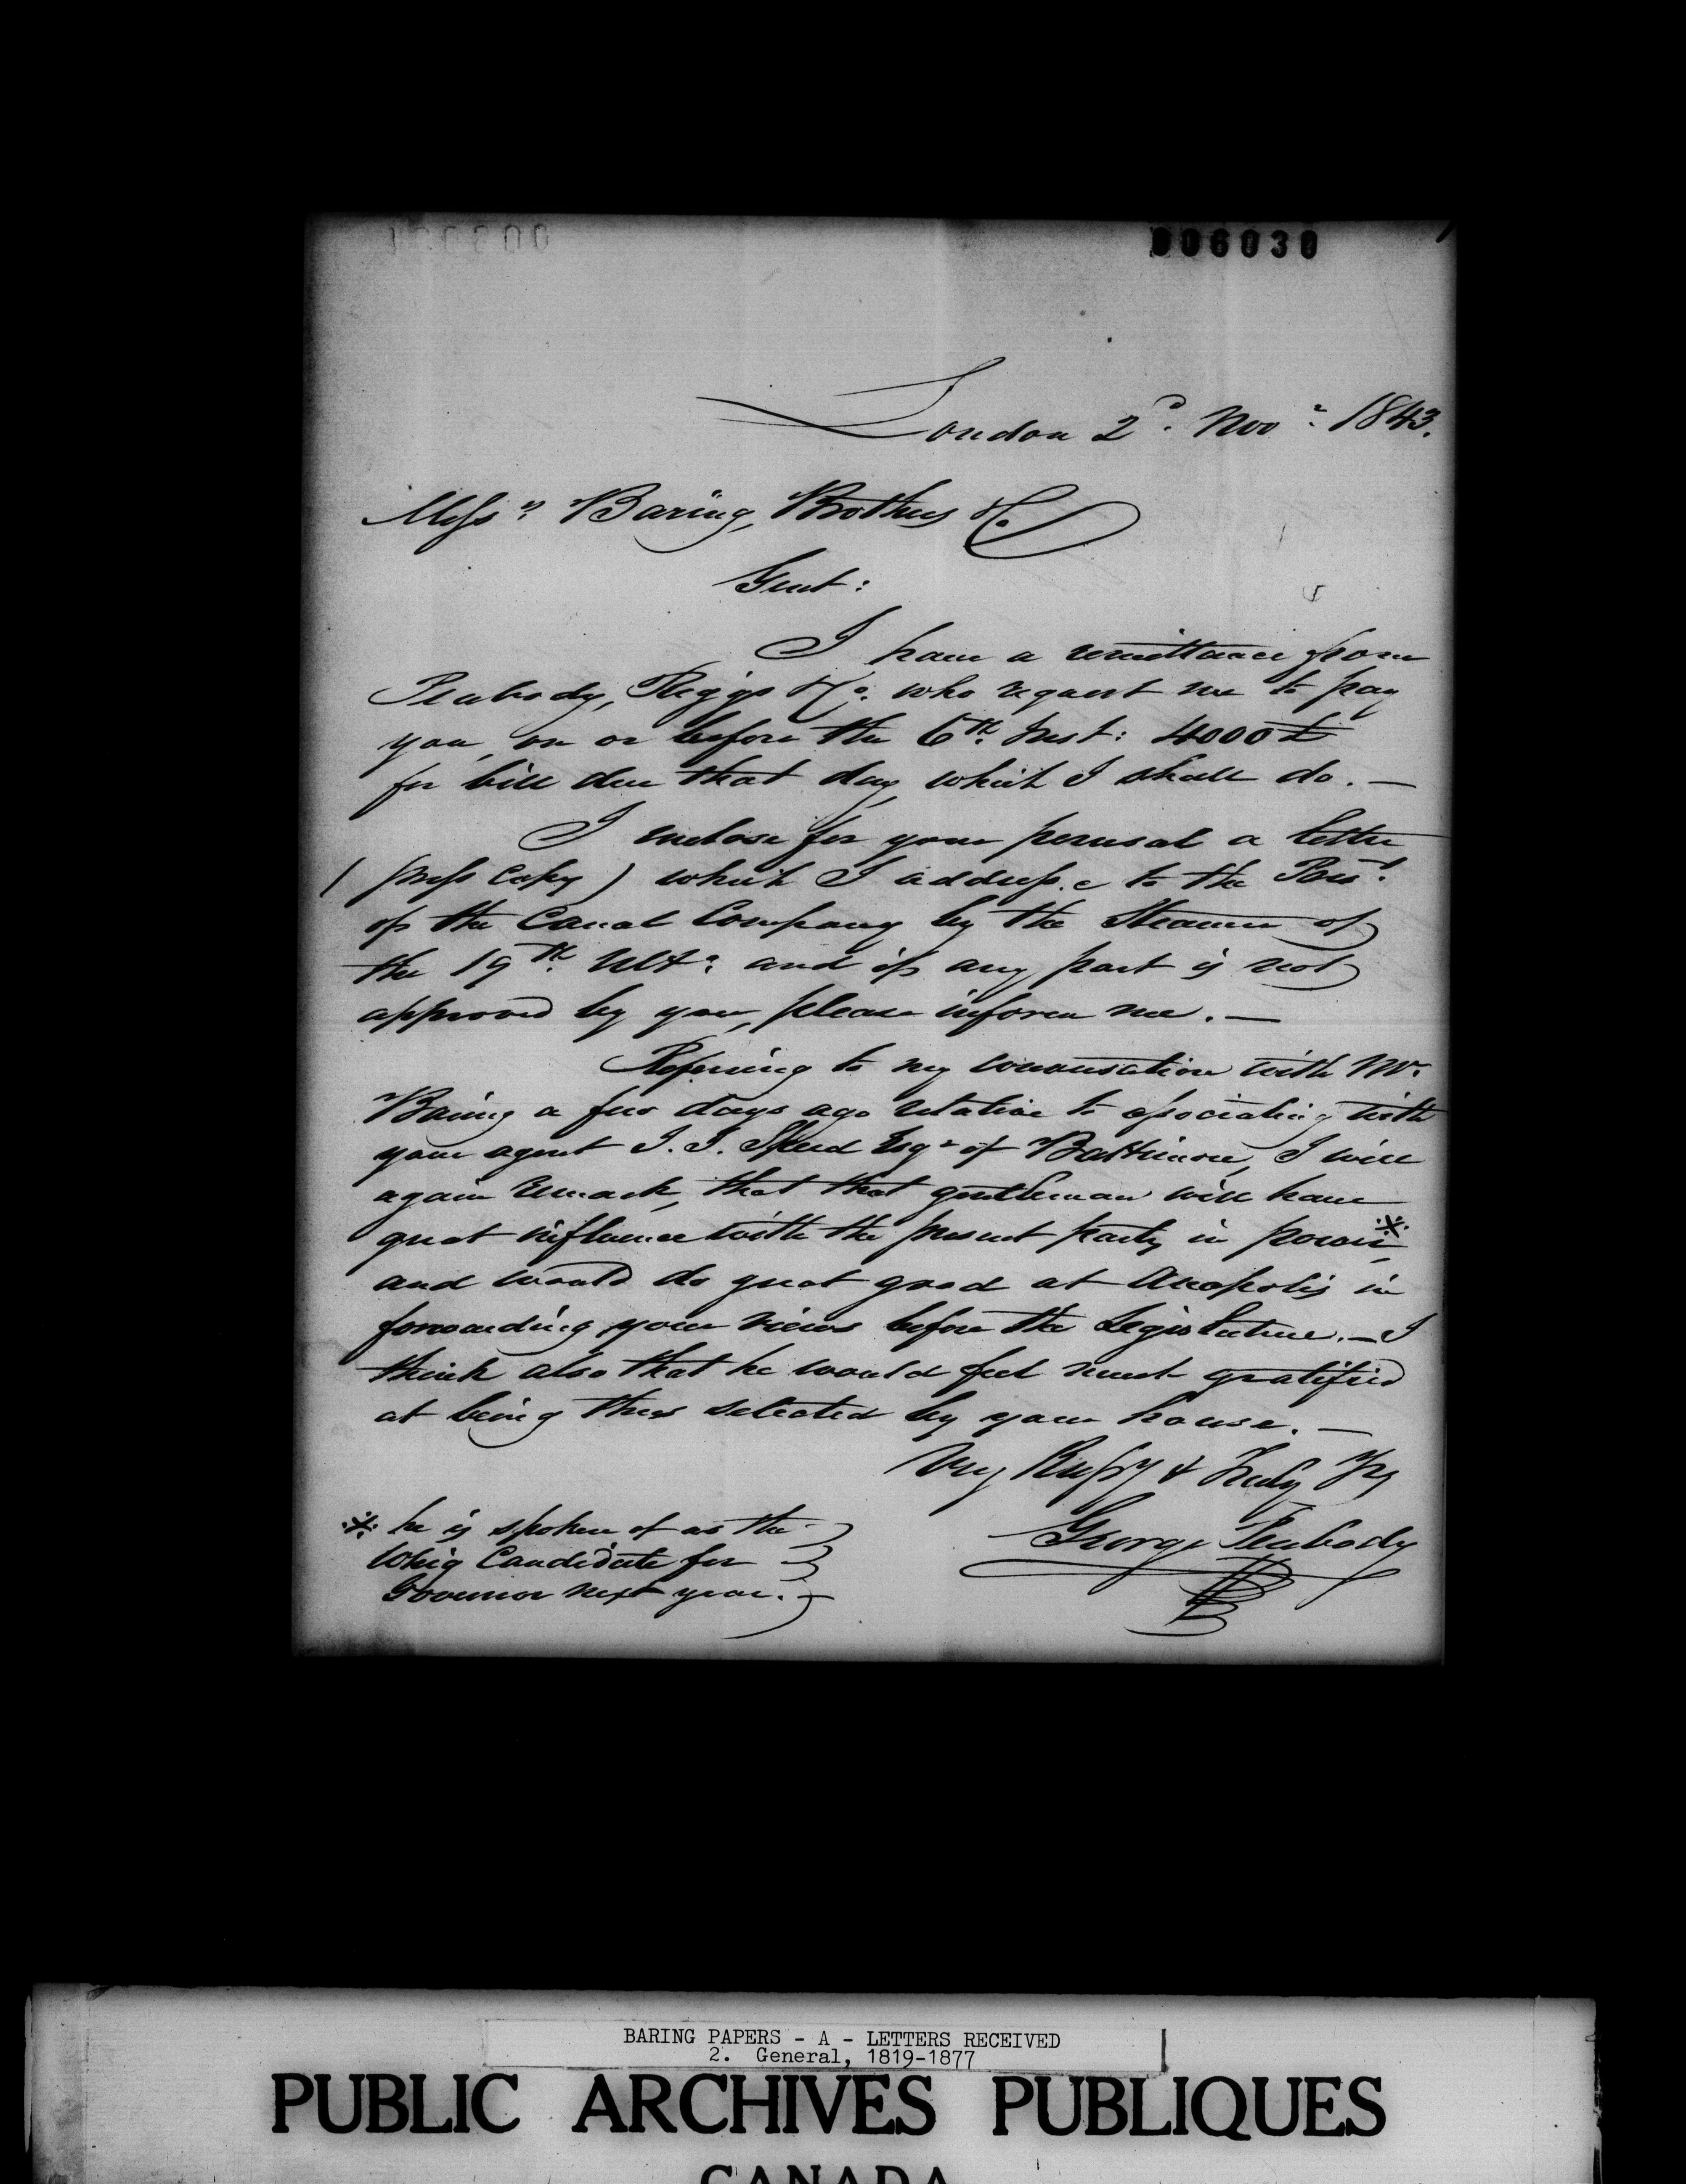 006030
London 2d. Novr. 1843.
Messrs. Baring, Brothers & Co.
Gent:
I have a remittance from
Peabody, Riggs & Co. who request me to pay
you, on or before the 6th. Inst: 4000 £
for bill due that day, which I shall do. —
I enclose for your perusal a letter
(press copy) which I address.e to the Prest.
of the Canal Company by the Steamer of
the 19th. Ulto. and if any part is not
approved by you, please inform me. —
Refering to my conversation with Mr.
Baring a few days ago relative to associating with
your agent J. J. Speed Esqr of Baltimore, I will
again remark, that that gentleman will have
great influence with the present party in power*,
and would do great good at Anapolis in
forwarding your views before the Legislature. — I
think also that he would feel much gratified
at being thus selected by your house. —
Very Respy & Truly Yrs
George Peabody
* he is spoken of as the
Whig Candidate for
Governor next year. —
BARING PAPERS - A - LETTERS RECEIVED
2. General, 1819-1877
PUBLIC ARCHIVES PUBLIQUES
CANADA